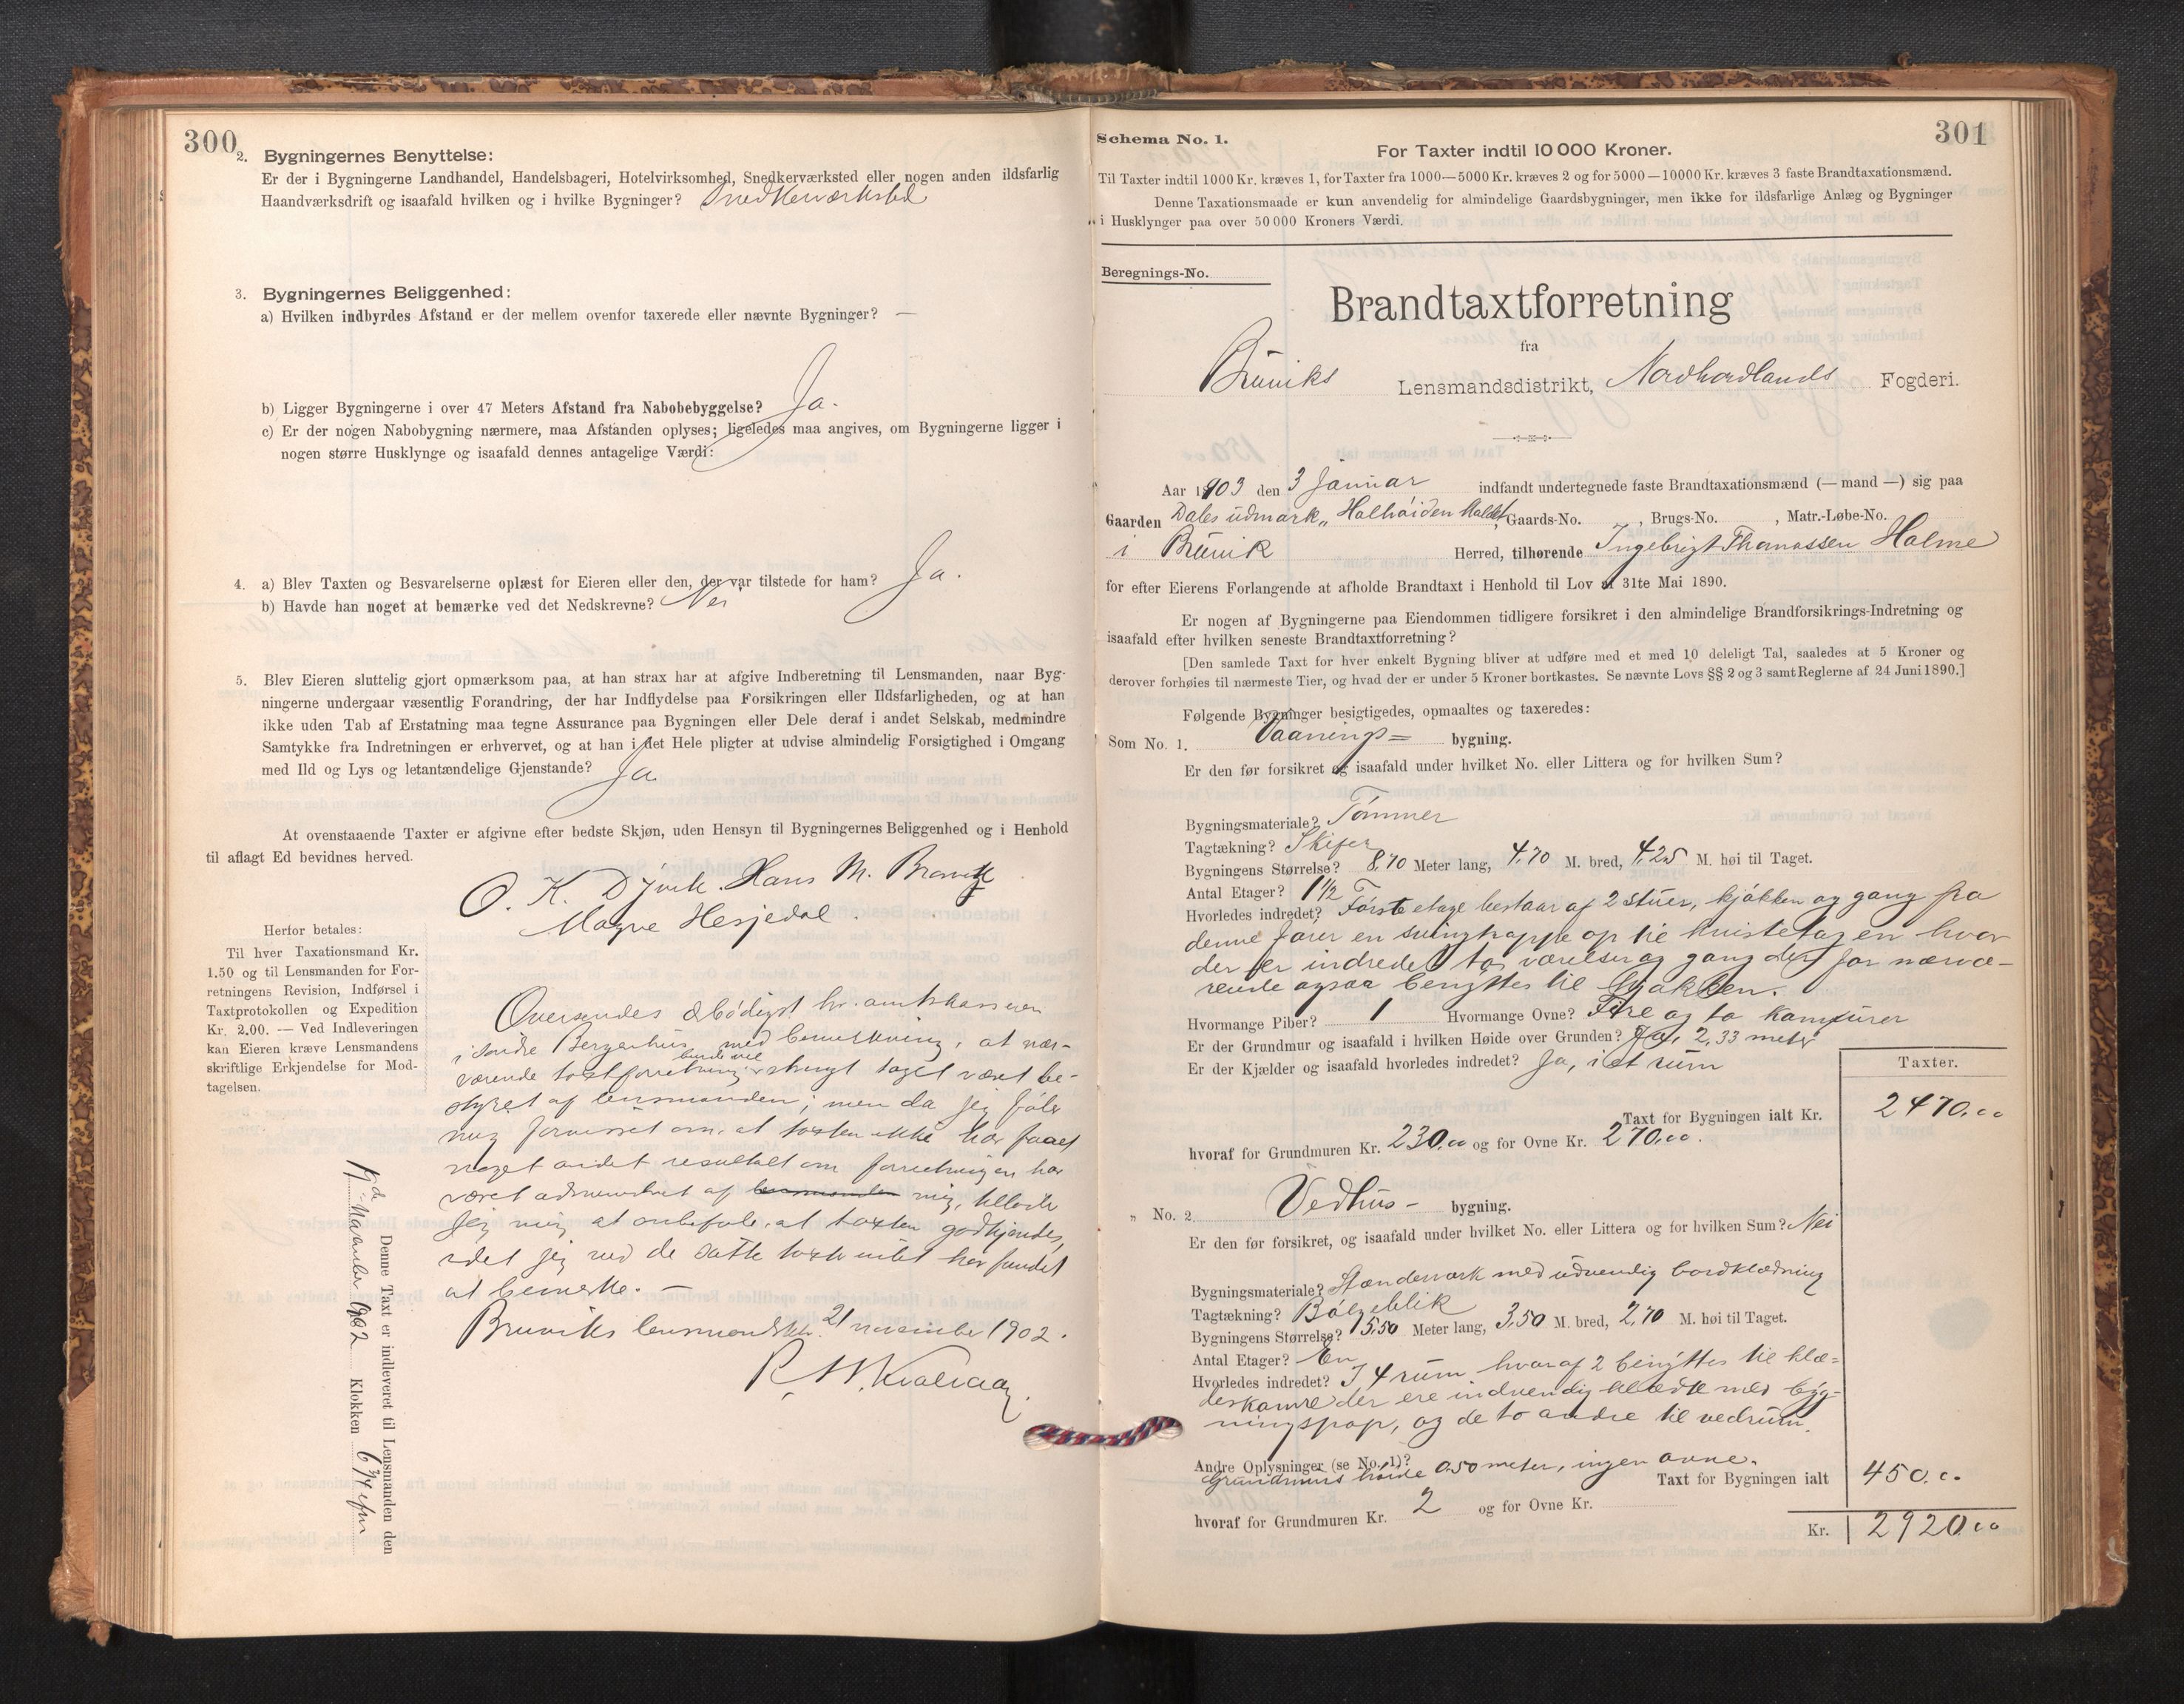 300
2. Bygningernes Benyttelse:
Er der i Bygningerne Landhandel, Handelsbageri, Hotelvirksomhed, Snedkerværksted eller nogen anden ildsfarlig
Haandværksdrift og isaafald hvilken og i hvilke Bygninger? Snedkerværksted
3. Bygningernes Beliggenhed:
a) Hvilken indbyrdes Afstand er der mellem ovenfor taxerede eller nævnte Bygninger? —
b) Ligger Bygningerne i over 47 Meters Afstand fra Nabobebyggelse? Ja.
c) Er der nogen Nabobygning nærmere, maa Afstanden oplyses; ligeledes maa angives, om Bygningerne ligger i
nogen større Husklynge og isaafald dennes antagelige Værdi:
4. a) Blev Taxten og Besvarelserne oplæst for Eieren eller den, der var tilstede for ham? Ja.
b) Havde han noget at bemærke ved det Nedskrevne? Nei
5. Blev Eieren sluttelig gjort opmærksom paa, at han strax har at afgive Indberetning til Lensmanden, naar Byg-
ningerne undergaar væsentlig Forandring, der har Indflydelse paa Forsikringen eller Ildsfarligheden, og at han
ikke uden Tab af Erstatning maa tegne Assurance paa Bygningen eller Dele deraf i andet Selskab, medmindre
Samtykke fra Indretningen er erhvervet, og at han i det Hele pligter at udvise almindelig Forsigtighed i Omgang
med Ild og Lys og letantændelige Gjenstande? Ja
At ovenstaaende Taxter er afgivne efter bedste Skjøn, uden Hensyn til Bygningernes Beliggenhed og i Henhold
til aflagt Ed bevidnes herved.
O. K. Djvik. Hans M.
Magne Hesjedal.
Herfor betales:
Til hver Taxationsmand Kr.
1.50 og til Lensmanden for For-
retningens Revision, Indførsel i
Taxtprotokollen og Expedition
Kr. 2.00. — Ved Indleveringen
kan Eieren kræve Lensmandens
skriftlige Erkjendelse for Mod-
tagelsen.
Oversendes ærbødigst hr. amtskasseren
i Søndre Bergenhus med bemerkning, at nær-
værende taxtforretning burde vel strengt taget været be-
styret af lensmanden; men da jeg føler
mig forvisset om, at taxten ikke har faaet
noget andet resultat om forretningen har
været administret af lensmanden mig, tillader
jeg mig at anbefale, at taxten godkjendes,
idet jeg ved de satte taxter intet har fundet
at bemerke. —
Bruviks lensmandskt. 21 november 1902.
Denne Taxt er indleveret til Lensmanden den
19de November 1902 Klokken 6 3/4 efm
Schema No. 1. 301
For Taxter indtil 10 000 Kroner.
Til Taxter indtil 1000 Kr. kræves 1, for Taxter fra 1000—5000 Kr. kræves 2 og for 5000—10000 Kr. kræves 3 faste Brandtaxationsmænd.
Denne Taxationsmaade er kun anvendelig for almindelige Gaardsbygninger, men ikke for ildsfarlige Anlæg og Bygninger
i Husklynger paa over 50 000 Kroners Værdi.
Beregnings-No.
Brandtaxtforretning
fra
Bruviks Lensmandsdistrikt, Nordhordlands Fogderi.
Aar 1903 den 3 Januar indfandt undertegnede faste Brandtaxationsmænd (— mand —) sig paa
Gaarden Dales udmark, Gaards-No. , Brugs-No. , Matr.-Løbe-No.
i Bruvik Herred, tilhørende Ingebrigt Thomassen Holme
for efter Eierens Forlangende at afholde Brandtaxt i Henhold til Lov af 31te Mai 1890.
Er nogen af Bygningerne paa Eiendommen tidligere forsikret i den almindelige Brandforsikrings-Indretning og
isaafald efter hvilken seneste Brandtaxtforretning?
[Den samlede Taxt for hver enkelt Bygning bliver at udføre med et med 10 deleligt Tal, saaledes at 5 Kroner og
derover forhøies til nærmeste Tier, og hvad der er under 5 Kroner bortkastes. Se nævnte Lovs §§ 2 og 3 samt Reglerne af 24 Juni 1890.]
Følgende Bygninger besigtigedes, opmaaltes og taxeredes:
Som No. 1. Vaanings= bygning.
Er den før forsikret og isaafald under hvilket No. eller Littera og for hvilken Sum?
Bygningsmateriale? Tømmer
Tagtækning? Skifer
Bygningens Størrelse? 8,70 Meter lang, 4,70 M. bred, 4,25 M. høi til Taget.
Antal Etager? 1½
Hvorledes indredet? Første etage bestaar af 2 stuer, kjøkken og gang fra
denne fører en svingtrappe op til kvistetagen hvor
der er indredet to værelser og gang der for nærvæ-
rende ogsaa benyttes til kjøkken.
Hvormange Piber? 1 Hvormange Ovne? Fire og to komfurer
Er der Grundmur og isaafald i hvilken Høide over Grunden? Ja, 2,33 meter
Er der Kjælder og isaafald hvorledes indredet? Ja, i et rum
Taxter.
Taxt for Bygningen ialt Kr. 2470.00
hvoraf for Grundmuren Kr. 230.00 og for Ovne Kr. 270,00.
„ No. 2. Vedhus- bygning.
Er den før forsikret, og isaafald under hvilket No. eller Littera og for hvilken Sum? Nei
Bygningsmateriale? Stenderverk med udvendig bordklædning
Tagtækning? Bølgeblik
Bygningens Størrelse? 15,50 Meter lang, 3,50 M. bred, 2,70 M. høi til Taget.
Antal Etager? En
Hvorledes indredet? I 4 rum hvoraf 2 benyttes til klæ=
deskamre der ere indvendig klædte med byg-
ningspap, og de to andre til vedrum.
Andre Oplysninger (se No. 1)?
Grundmurs høide 0,50 meter, ingen ovne.
Taxt for Bygningen ialt 450.00
hvoraf for Grundmuren Kr. 2 og for Ovne Kr.
Kr. 2920.00